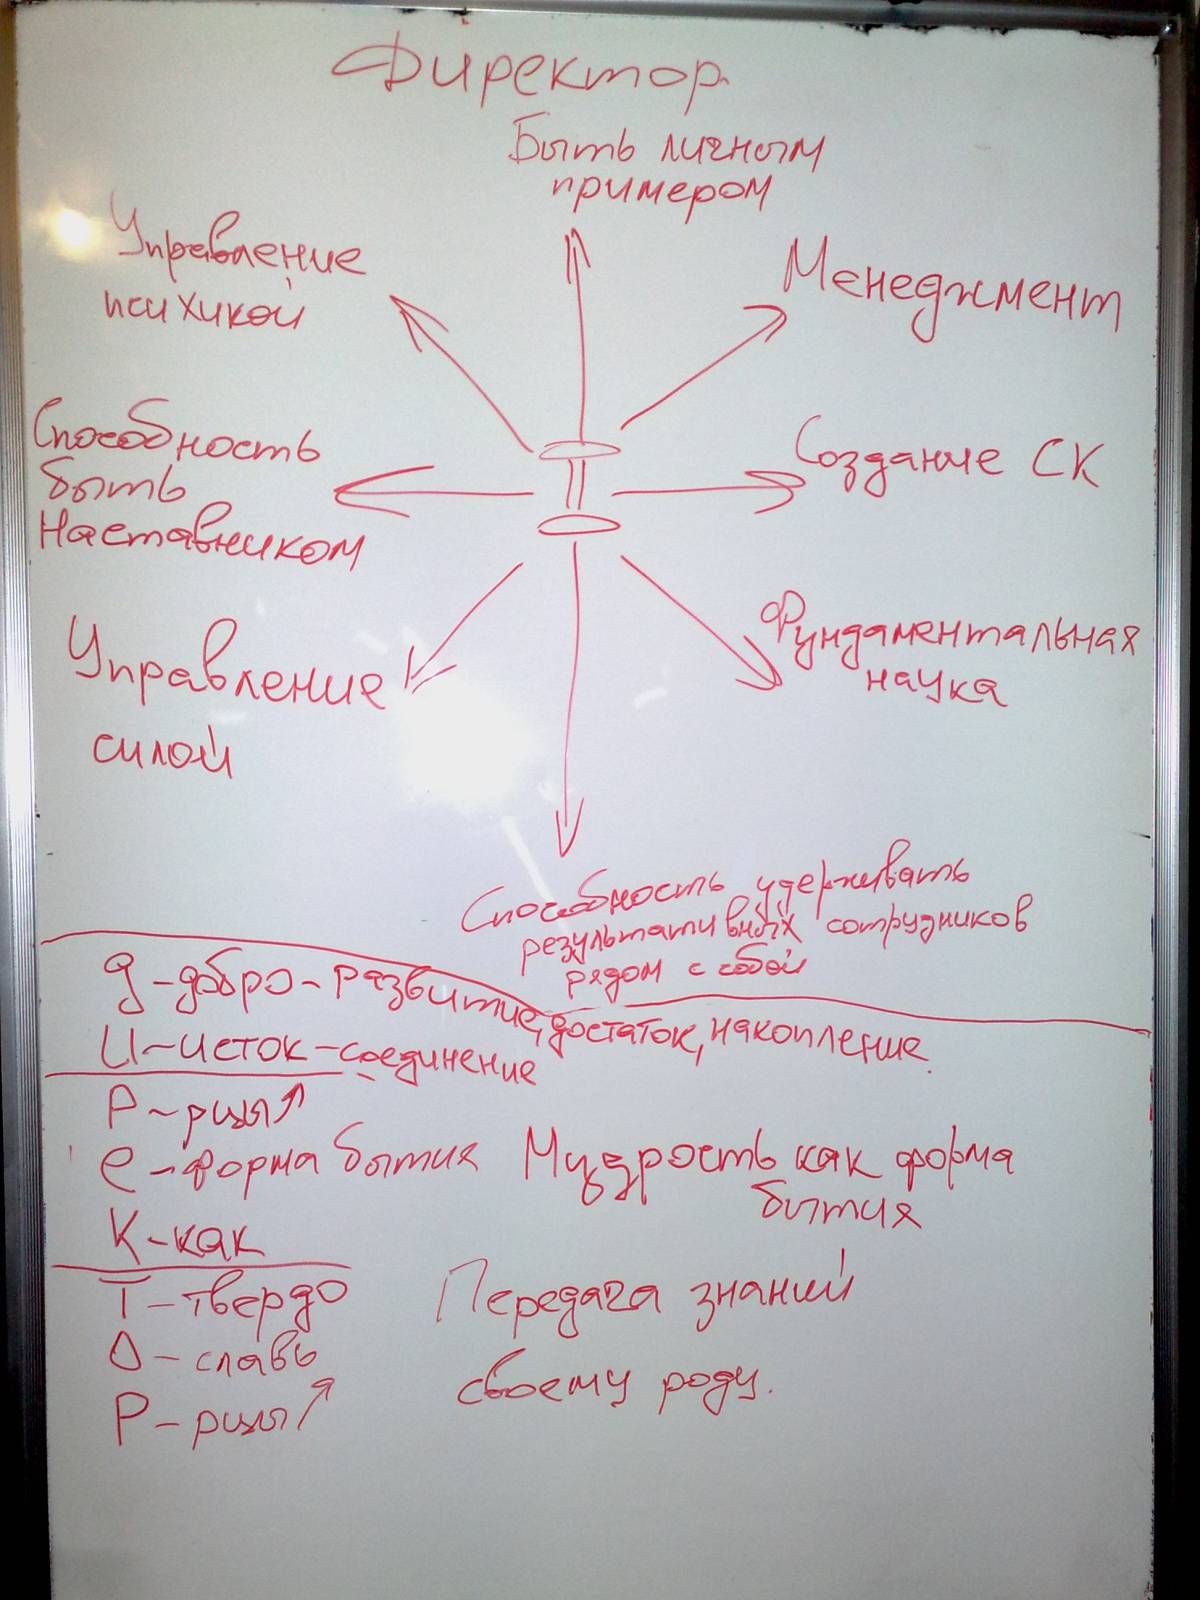 Директор
Быть личным
примером
Управление
психикой
Менеджмент
Способность
быть
Наставником
Создание СК
Управление
силой
Фундаментальная
наука
Способность удерживать
результативных сотрудников
рядом с собой
Д-добро-развитие, достаток, накопление
И-исток-соединение
Р-рцы
е-форма бытия Мудрость как форма
бытия
К-как
Т-твердо
Передача знаний
О-славь
своему роду.
Р-рцы